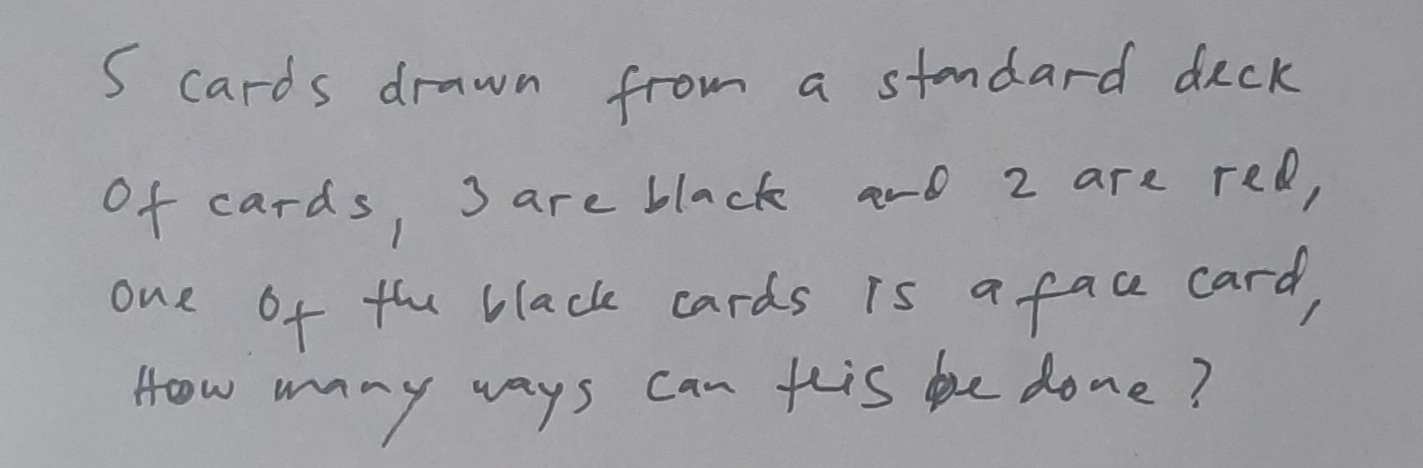 5 cards drawn from a standard deck
of cards, 3 are black and 2 are red,
one of the black cards is a face card,
How many ways can this be done?